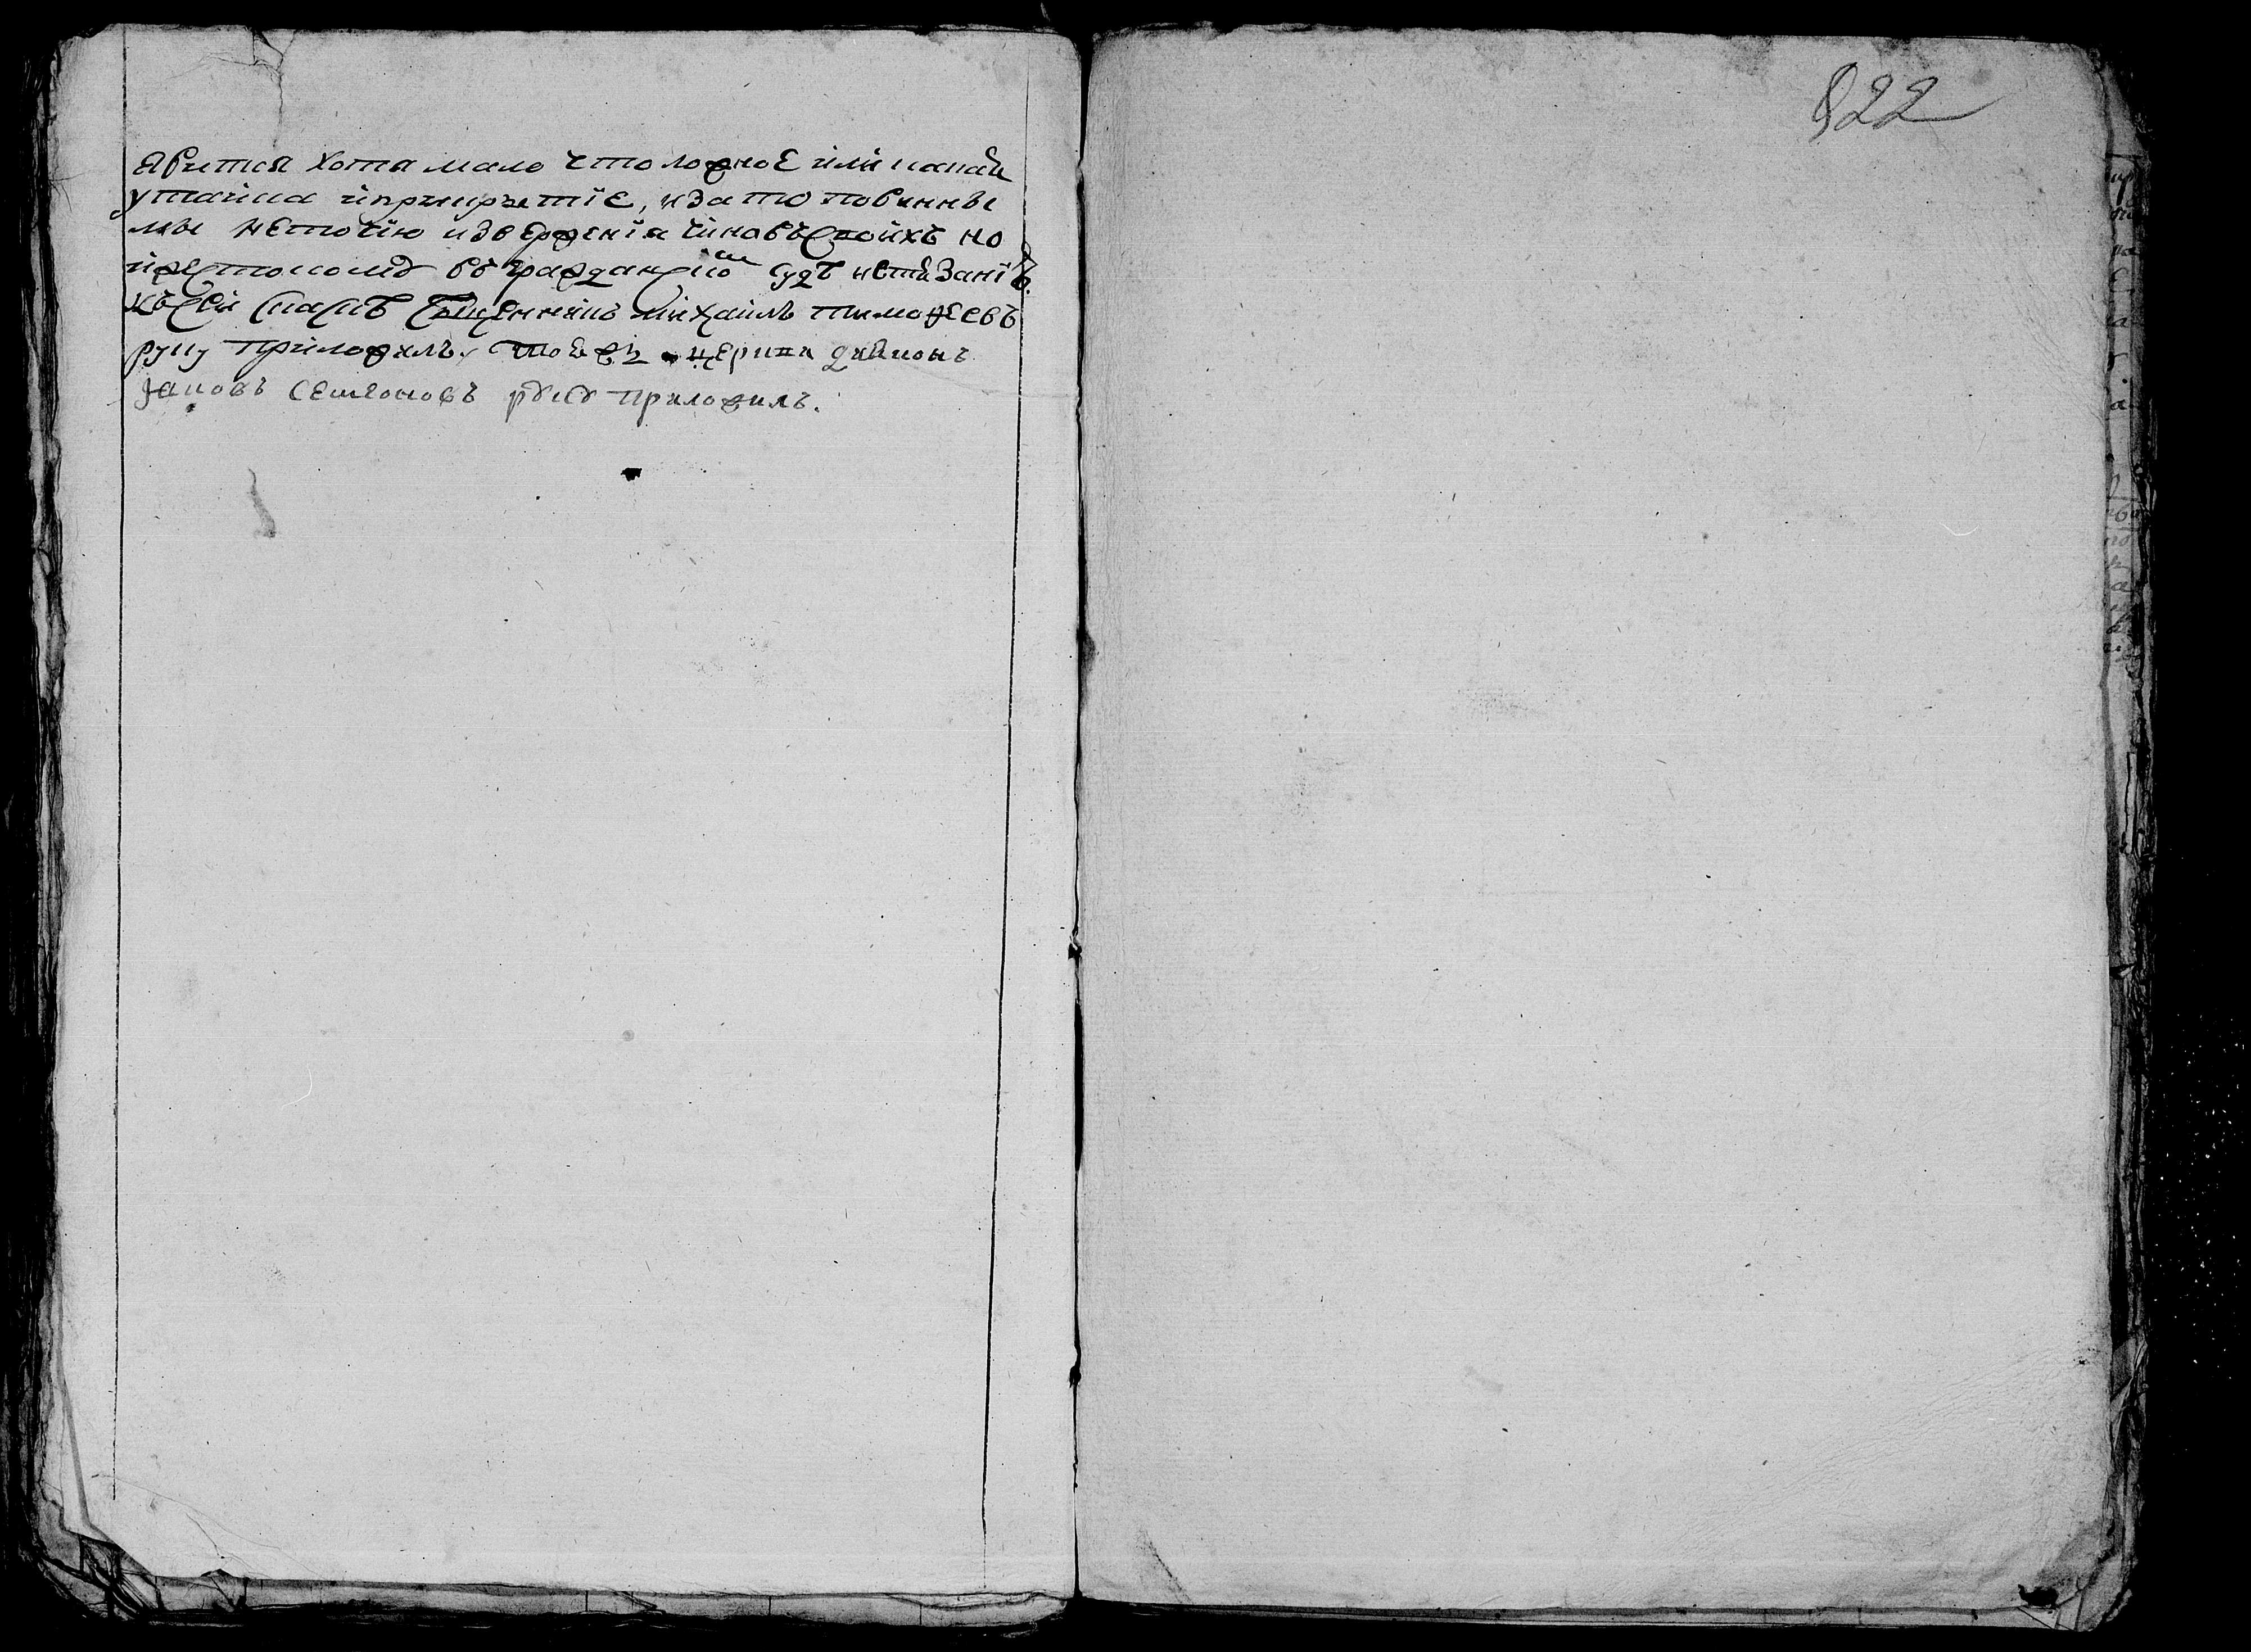 822
явитися хотя мало что ложное или какая
утайка и прикрытие, и за то повинны
мы не точию извержения чиновъ своихъ но
и жестокому въ гражданском суде истязанию.
къ сей скаске священникъ михаилъ тимофеевъ
руку приложилъ. тоежъ церкви диаконъ
иаковъ семеоновъ руку приложилъ.